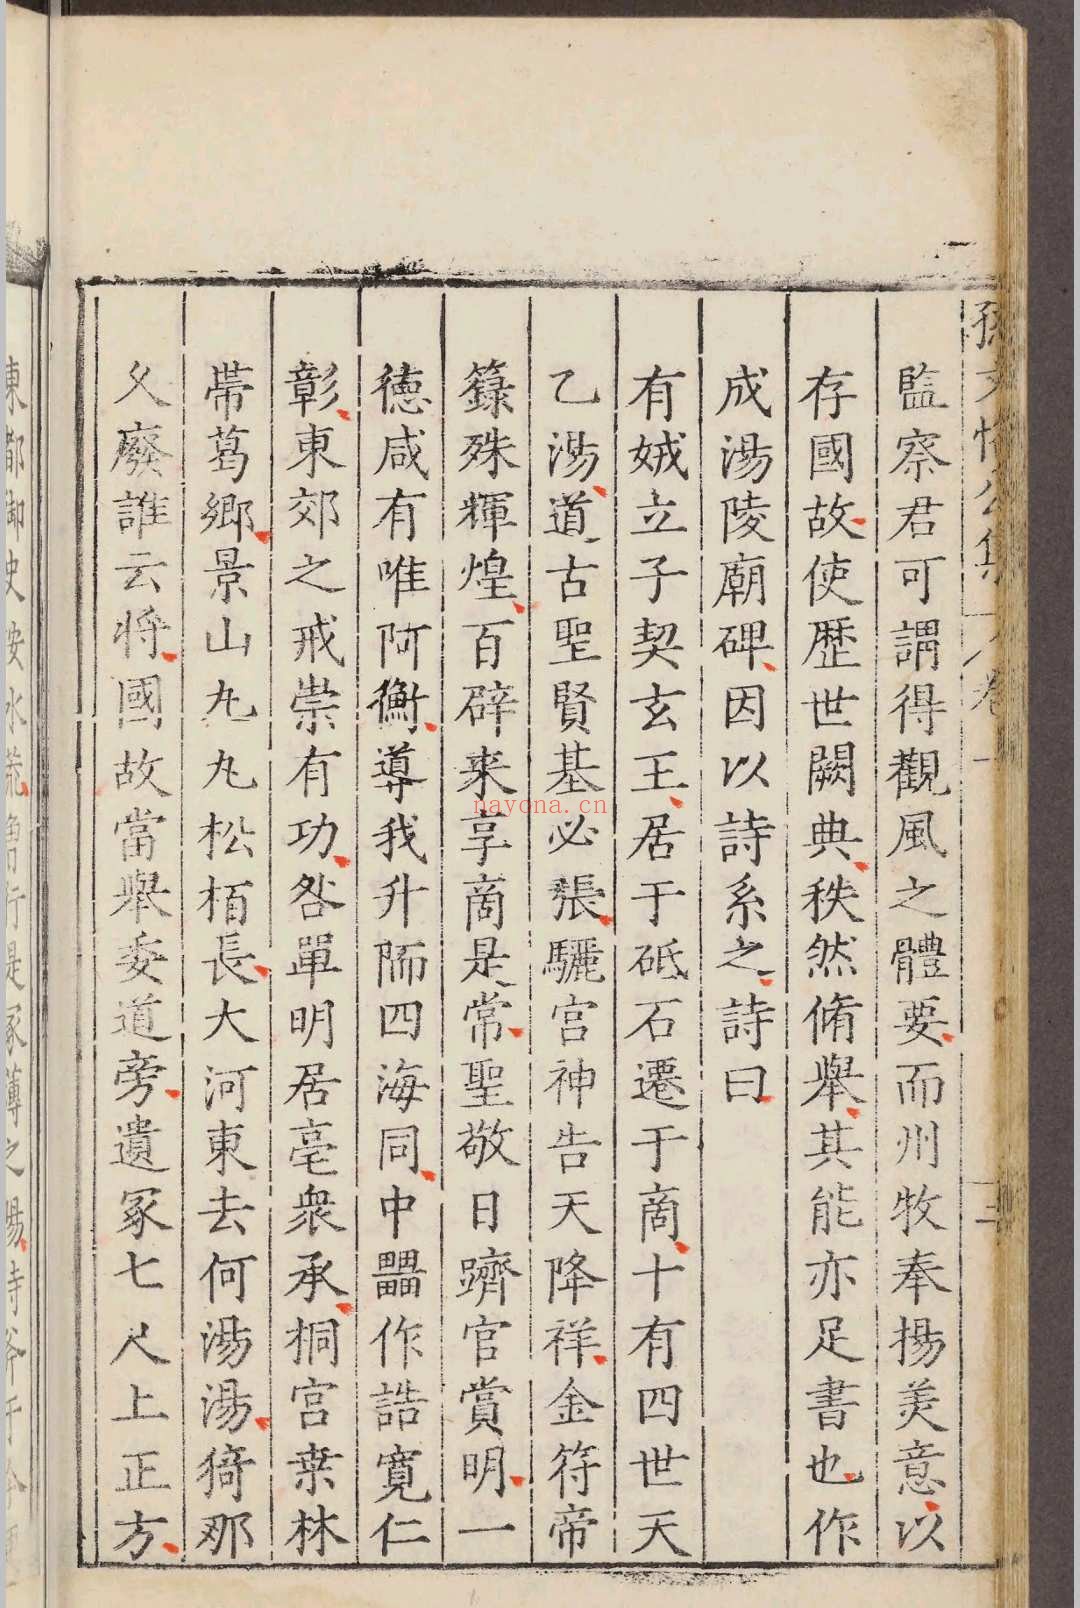 監察君可謂得觀風之體要而州牧奉揚美意以
存國故使歷世闕典秩然脩舉其能亦足書也作
成湯陵廟碑因以詩系之詩曰
有娀立子契玄王居于砥石遷于商十有四世天
乙湯道古聖賢基必張驪宮神告天降祥金符帝
籙殊輝煌百辟来享商是常聖敬日躋官賞明一
德咸有唯阿衡導我升陑四海同中畾作誥寬仁
彰東郊之戒崇有功咎單明居亳衆承桐宮桒林
帶葛鄉景山丸丸松栢長大河東去何湯湯猗那
久廢誰云將國故當舉委道旁遺冢七尺上正方
nayona.cn